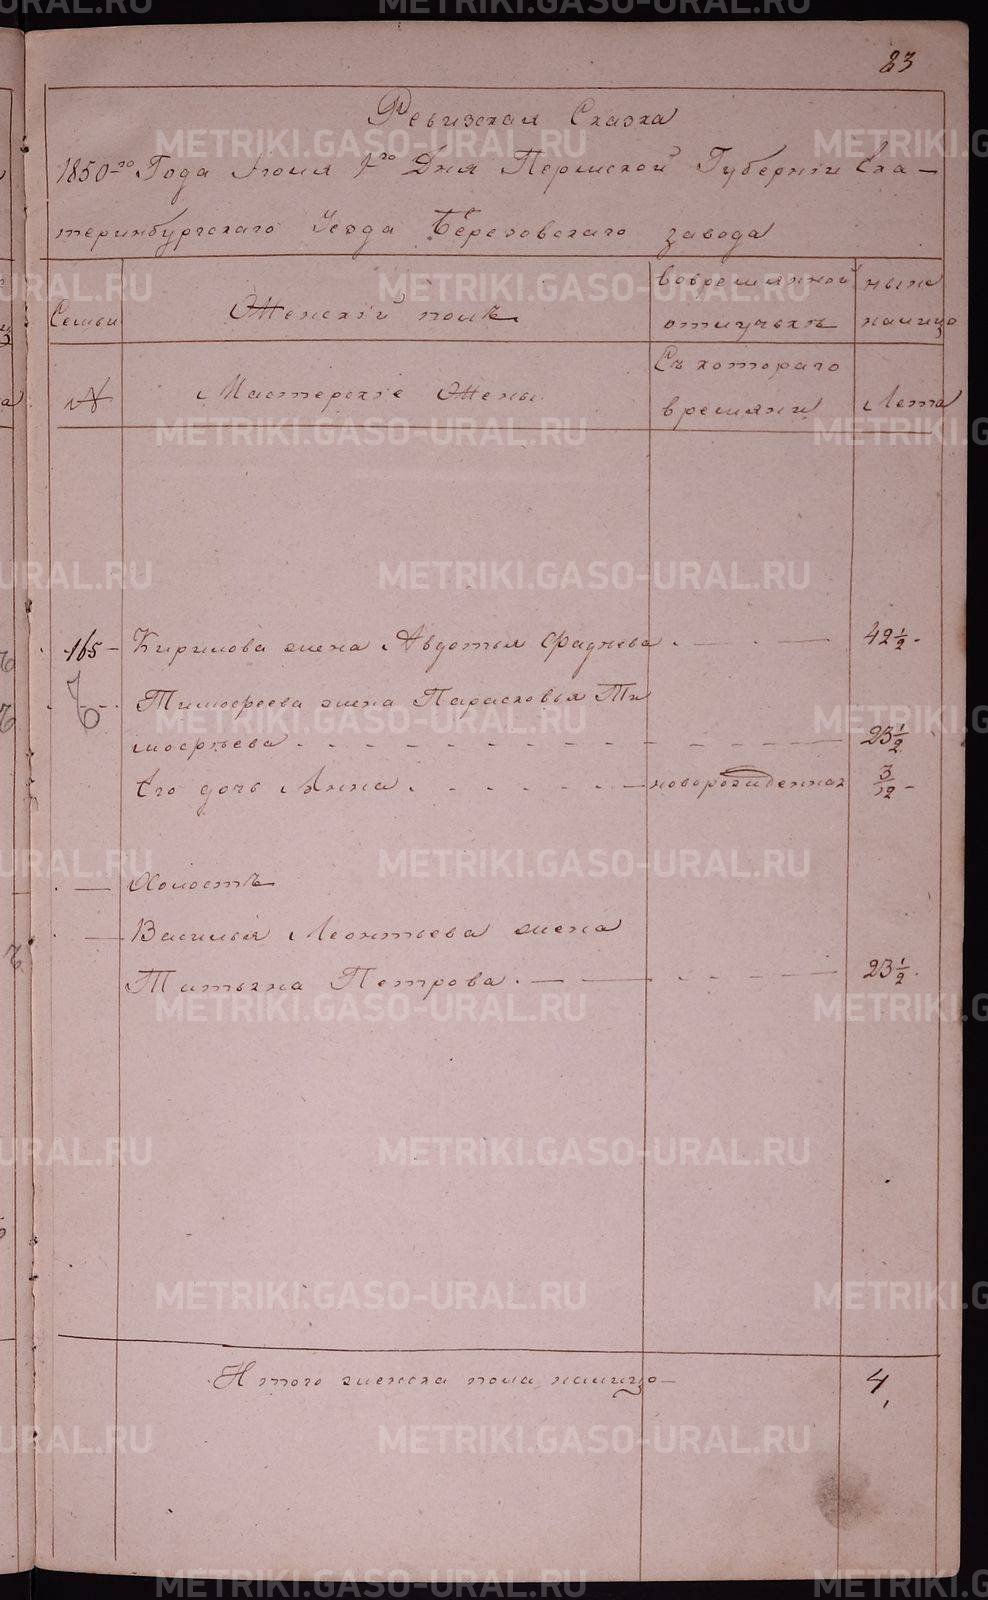 83
Ревизская Сказка
1850-го Года Июня 1го Дня Пермской Губерніи Ека-
теринбургскаго Уезда Березовскаго завода
Семьи
Женскій полъ
вовременной
отлучькъ
ныне
налицо
№
Мастерскіе Жены
Съ котораго
времяни
Лета
165 - Кирилова жена Авдотья Фадѣева 42 1/2
Тимофеева жена Парасковья Ти
мофѣева 23 1/2
Его дочь Анна новорожденная 3/12
Холостъ
Василья Леонтьева жена
Татьяна Петрова 23 1/2
Итого женска пола налицо 4
METRIKI.GASO-URAL.RU